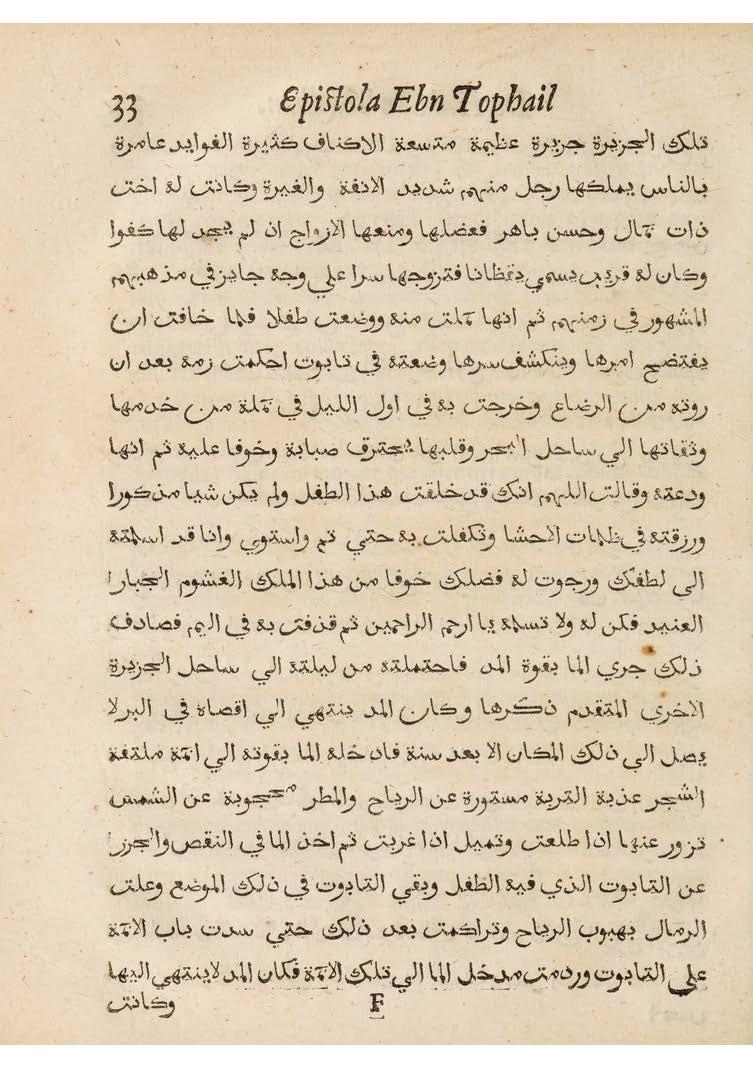 33 Epistola Ebn Tophail
تلك الجزيرة جزيرة عظيمة متسعة الاكناف كثيرة الفوايد عامرة
بالناس يملكها رجل منهم شديد الانفة والغيرة وكانت له اخت
ذات جمال وحسن باهر فعضلها ومنعها الازواج ان لم يجد لها كفوا
وكان له قريب يسمي يقظانا فتزوجها سرا علي وجه جايز في مذهبهم
المشهور في زمنهم ثم انها حملت منه ووضعت طفلا فلما خافت ان
يفتضح امرها وينكشف سرها وضعته في تابوت احكمت زمة بعد ان
روته من الرضاع وخرجت به في اول الليل في جملة من خدمها
وثقاتها الي ساحل البحر وقلبها يحترق صبابة وخوفا عليه ثم انها
ودعته وقالت اللهم انك قد خلقت هذا الطفل ولم يكن شيا مذكورا
ورزقته في ظلمات الاحشا وتكفلت به حتي تم واستوي وانا قد اسلمته
الي لطفك ورجوت له فضلك خوفا من هذا الملك الغشوم الجبار
العنيد فكن له ولا تسلمه يا ارحم الراحمين ثم قذفت به في اليم فصادف
ذلك جري الما بقوة المد فاحتملته من ليلته الي ساحل الجزيرة
الاخري المتقدم ذكرها وكان المد ينتهي الي اقصاه في البر لا
يصل الي ذلك المكان الا بعد سنة فادخله الما بقوته الي اجمة ملتفة
الشجر عذبة التربة مستورة عن الرياح والمطر محجوبة عن الشمس
تزور عنها اذا طلعت وتميل اذا غربت ثم اخذ الما في النقص والجزر
عن التابوت الذي فيه الطفل وبقي التابوت في ذلك الموضع وعلت
الرمال بهبوب الرياح وتراكمت بعد ذلك حتي سدت باب الاجمة
علي التابوت وردمت مدخل الما الي تلك الاجمة فكان المد لا ينتهي اليها
F وكانت